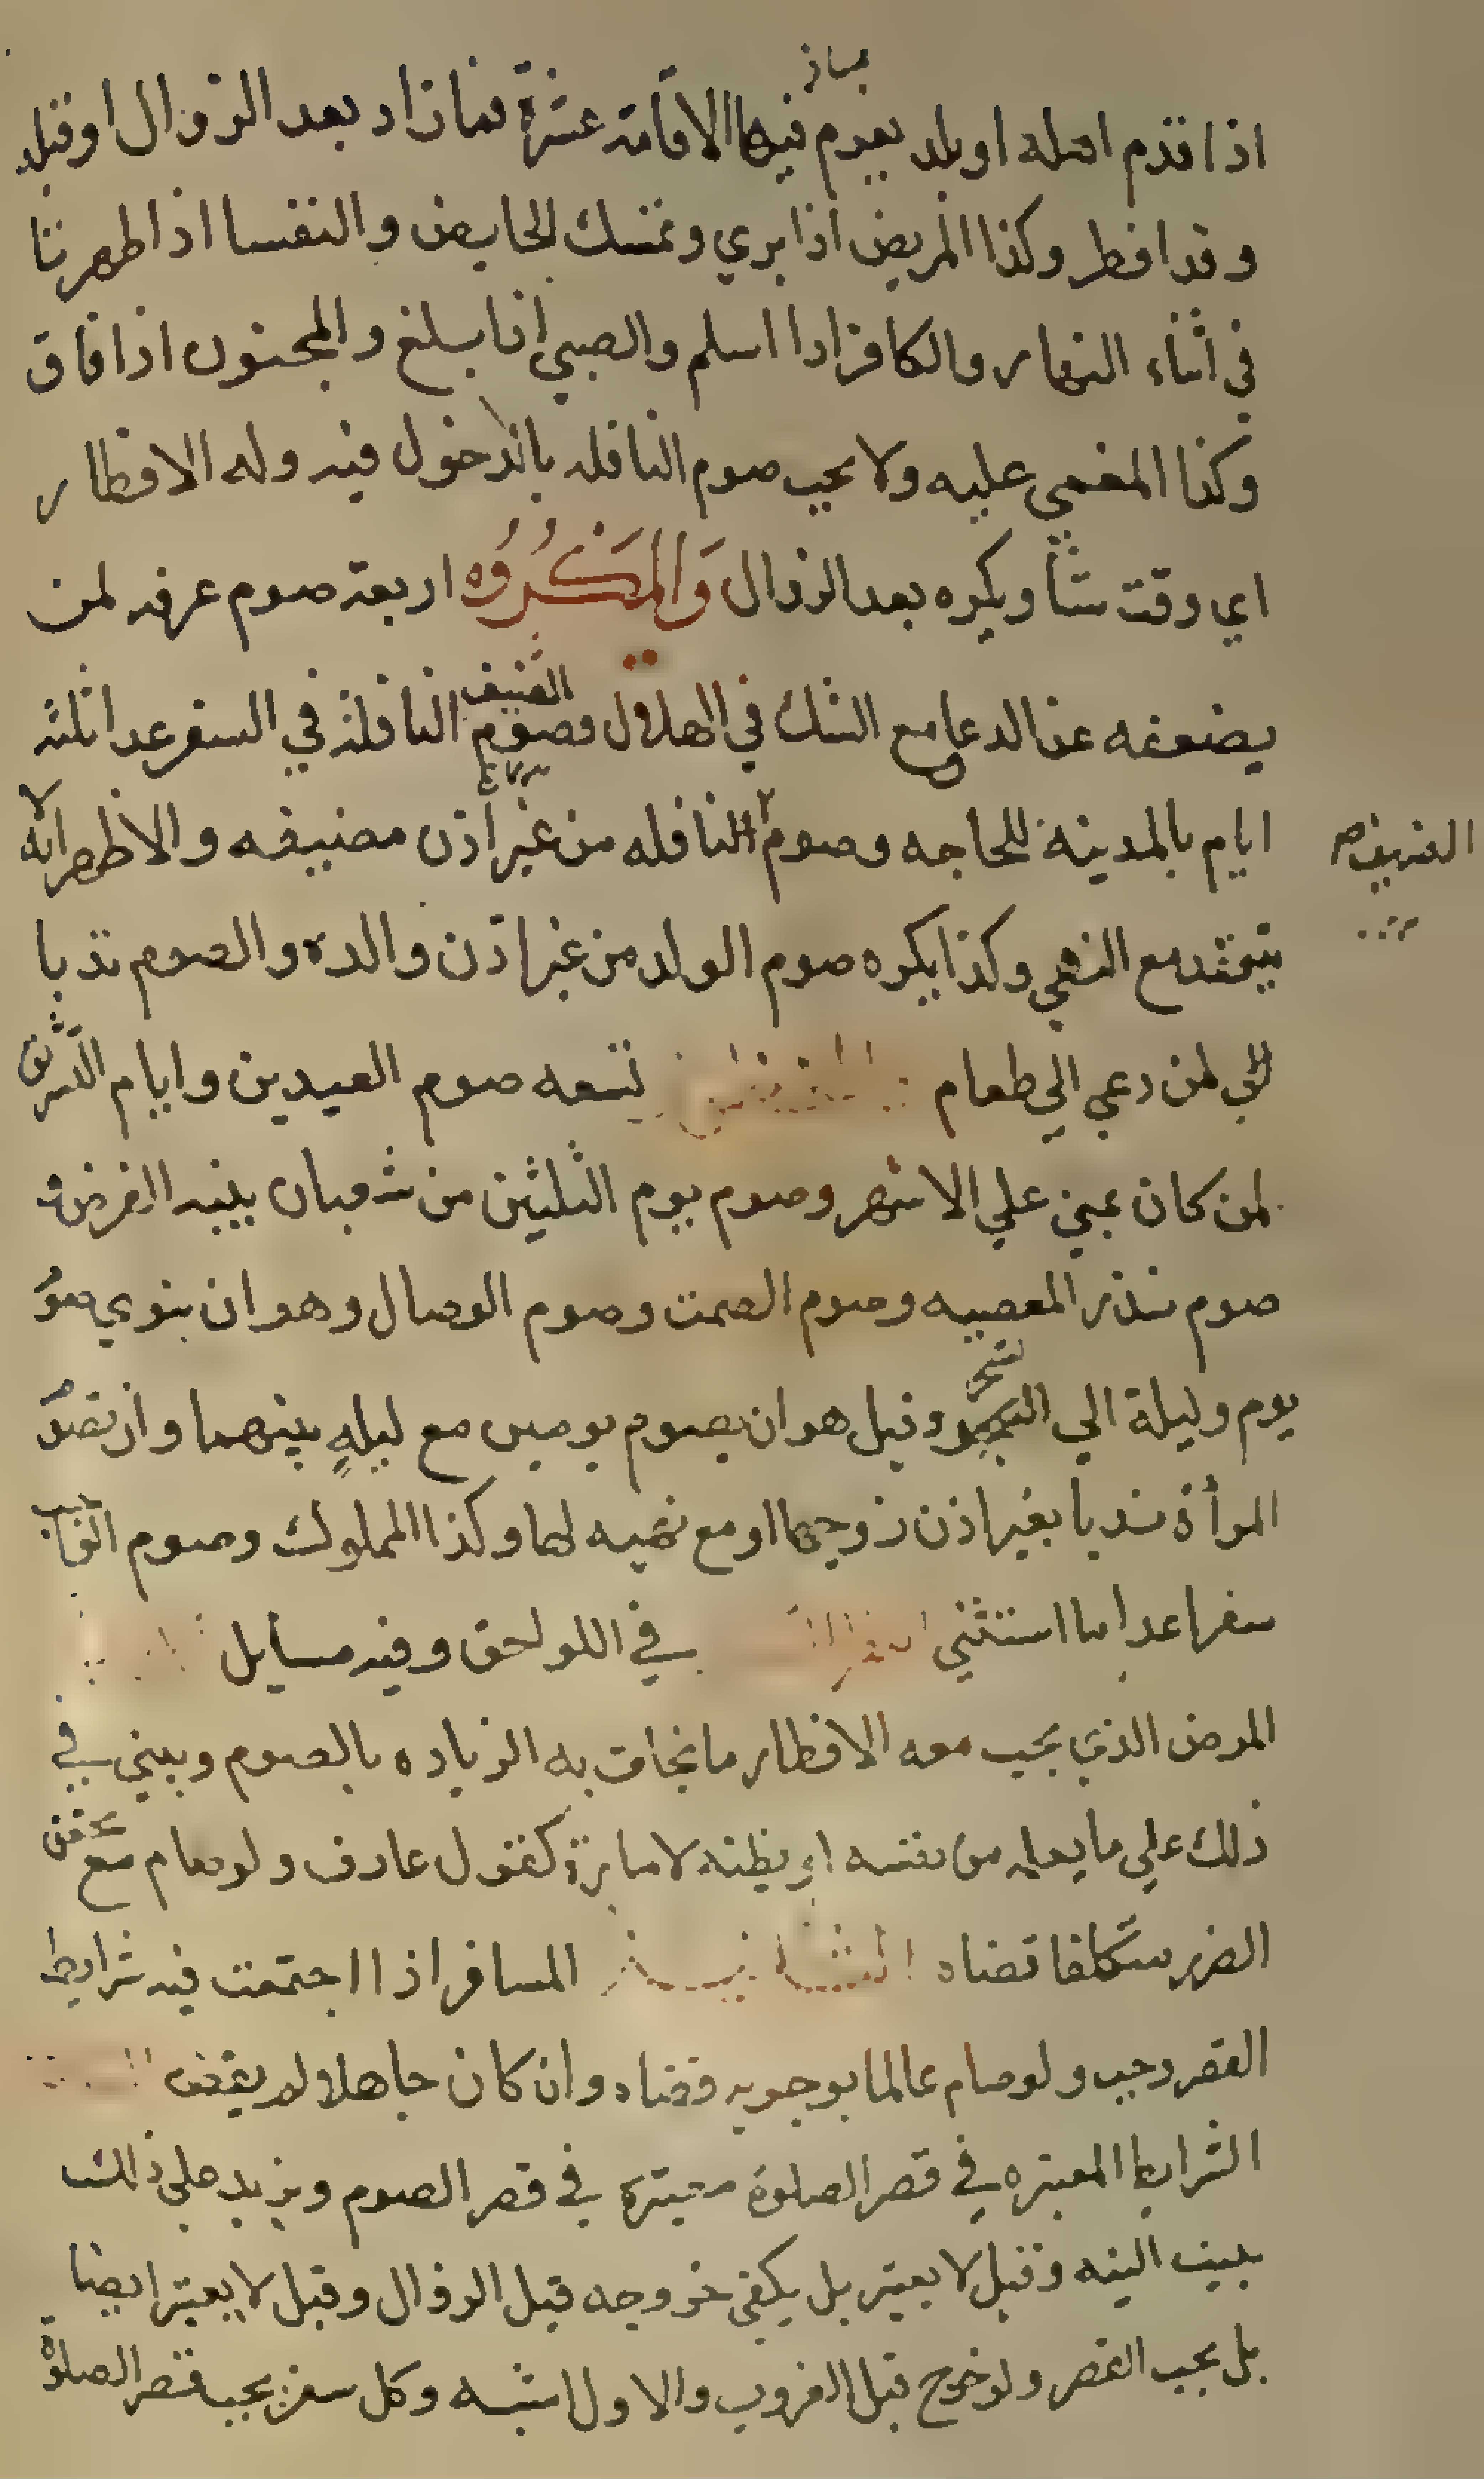 اذا قدم اهله او بلد يعزم فيها الاقامة عشرة فما زاد بعد الزوال او قبله
وقد افطر وكذا المريض اذا بري وتمسك الحايض والنفسا اذا طهرتا
في اثناء النهار والكافر اذا اسلم والصبي اذا بلغ والمجنون اذا فاق
وكذا المغمي عليه ولا يجب صوم النافله بالدخول فيه وله الافطار
اي وقت شأ ويكره بعد الزوال وَالمَكْرُوُه اربعة صوم عرفه لمن
يضعفه عن الدعا ومع الشك في الهلال وصوم النافلة في السفر عدا ثلثه
ايام بالمدينة للحاجه وصوم الضيف النافله من غير اذن مضيفه والاظهر انه لا
ينعقد مع النهي وكذا يكره صوم الولد من غير اذن والده والصوم ندبا
لمن دعي الي طعام تسعه صوم العيدين وايام التشريق
لمن كان بمني علي الاشهر وصوم يوم الثلثين من شعبان بنيه الفرض و
صوم نذر المعصيه وصوم الصمت وصوم الوصال وهو ان ينوي صوم
يوم وليلة الي السحر وقيل هو ان يصوم يومين مع ليلةٍ بينهما وان تصوم
المرأة ندبا بغير اذن زوجها او مع نهيه لها وكذا المملوك وصوم الواجب
سفرا عدا ما استثني النظر الثالث في اللواحق وفيه مسايل
المرض الذي يجب معه الافطار ما يخاف به الزياده بالصوم ويبني في
ذلك علي ما يعلمه من نفسه او يظنه لامارة كقول عارف ولو صام مع تحقق
الضرر متكلفا قضاه الثانية المسافر اذا اجتمعت فيه شرايط
القصر وجب ولو صام عالما بوجوبه قضاه وان كان جاهلا لم يقض
الشرايط المعتبره في قصر الصلوة معتبرة في قصر الصوم ويزيد علي ذلك
تبييت النيه وقيل لا يعتبر بل يكفي خروجه قبل الزوال وقيل لا يعتبر ايضا
بل يجب القصر ولو خرج قبل الغروب والاول اشبه وكل سفر يجب قصر الصلوة
الضيف صح